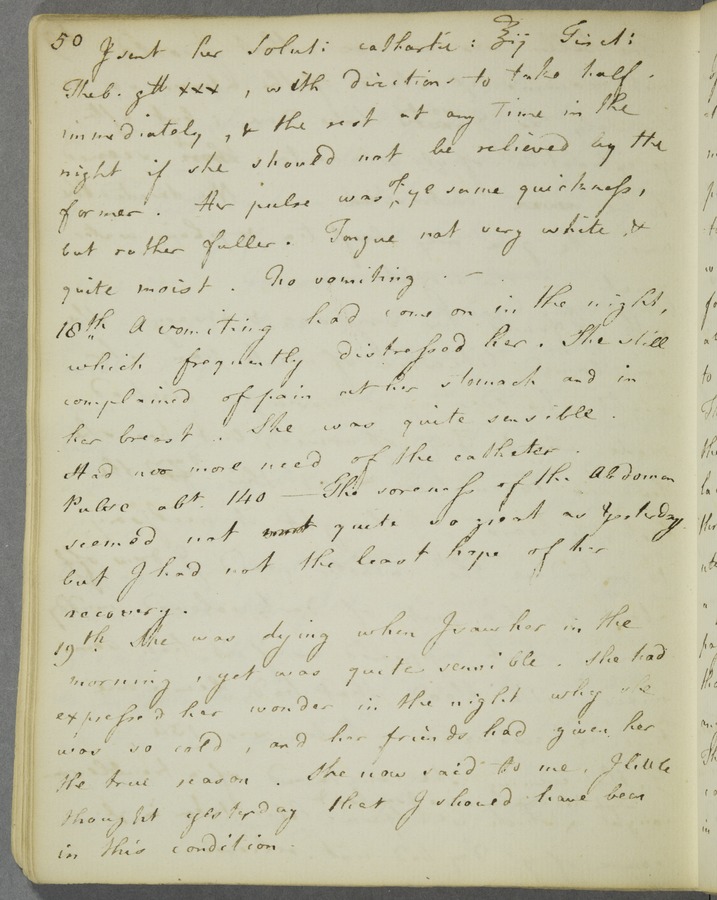 50 I sent her Solut: cathartic: ℥ij Tinct:
Theb. gtt xxx, with directions to take half
immediately, & the rest at any Time in the
night if she should not be relieved by the
former. Her pulse was of ye same quickness,
but rather fuller. Tongue not very white, &
quite moist. No vomiting. –
18th A vomiting had come on in the night,
which frequently distressed her. She still
complained of pain at her stomach and in
her breast. She was quite sensible.
Had no more need of the catheter.
Pulse abt. 140 — The soreness of the Abdomen
seemed not quite so great as yesterday
but I had not the least hope of her
recovery.
19th She was dying when I saw her in the
morning, yet was quite sensible. She had
expressed her wonder in the night why she
was so cold, and her friends had given her
the true reason. She now said to me, I little
thought yesterday that I should have been
in this condition.